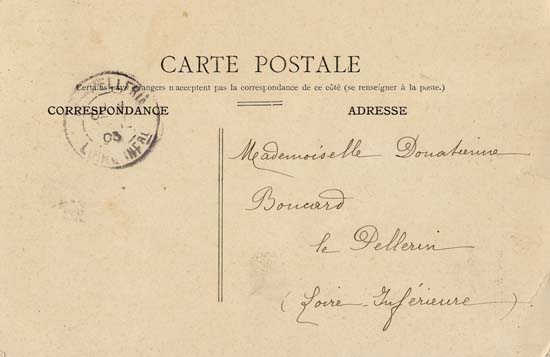 CARTE POSTALE
Certains pays étrangers n'acceptent pas la correspondance de ce côté (se renseigner à la poste.)
CORRESPONDANCE
ADRESSE
03
Mademoiselle Donatienne
Boucard
le Pellerin
(Loire-Inférieure)